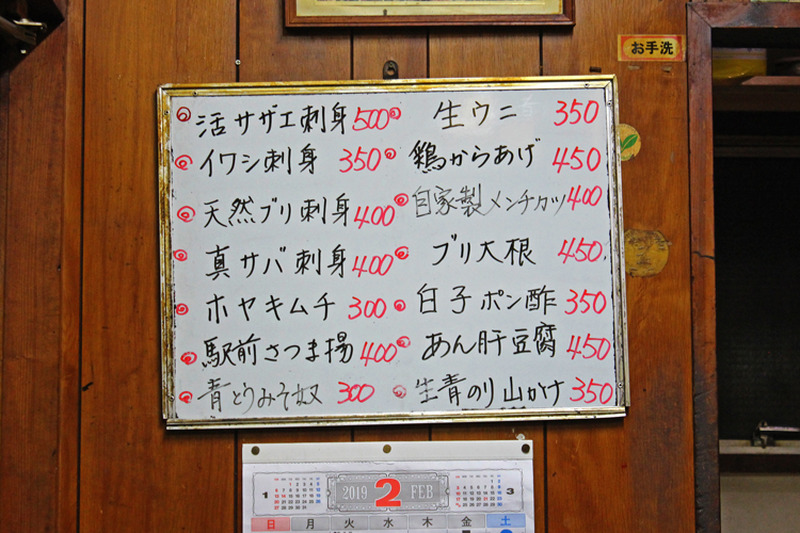 お手洗
活サザエ刺身 500
イワシ刺身 350
天然ブリ刺身 400
真サバ刺身 400
ホヤキムチ 300
駅前さつま揚 400
青とうみそ奴 300
生ウニ 350
鶏からあげ 450
自家製メンチカツ 400
ブリ大根 450
白子ポン酢 350
あん肝豆腐 450
生青のり山かけ 350
1 2019 2 FEB 3
日 月 火 水 木 金 土